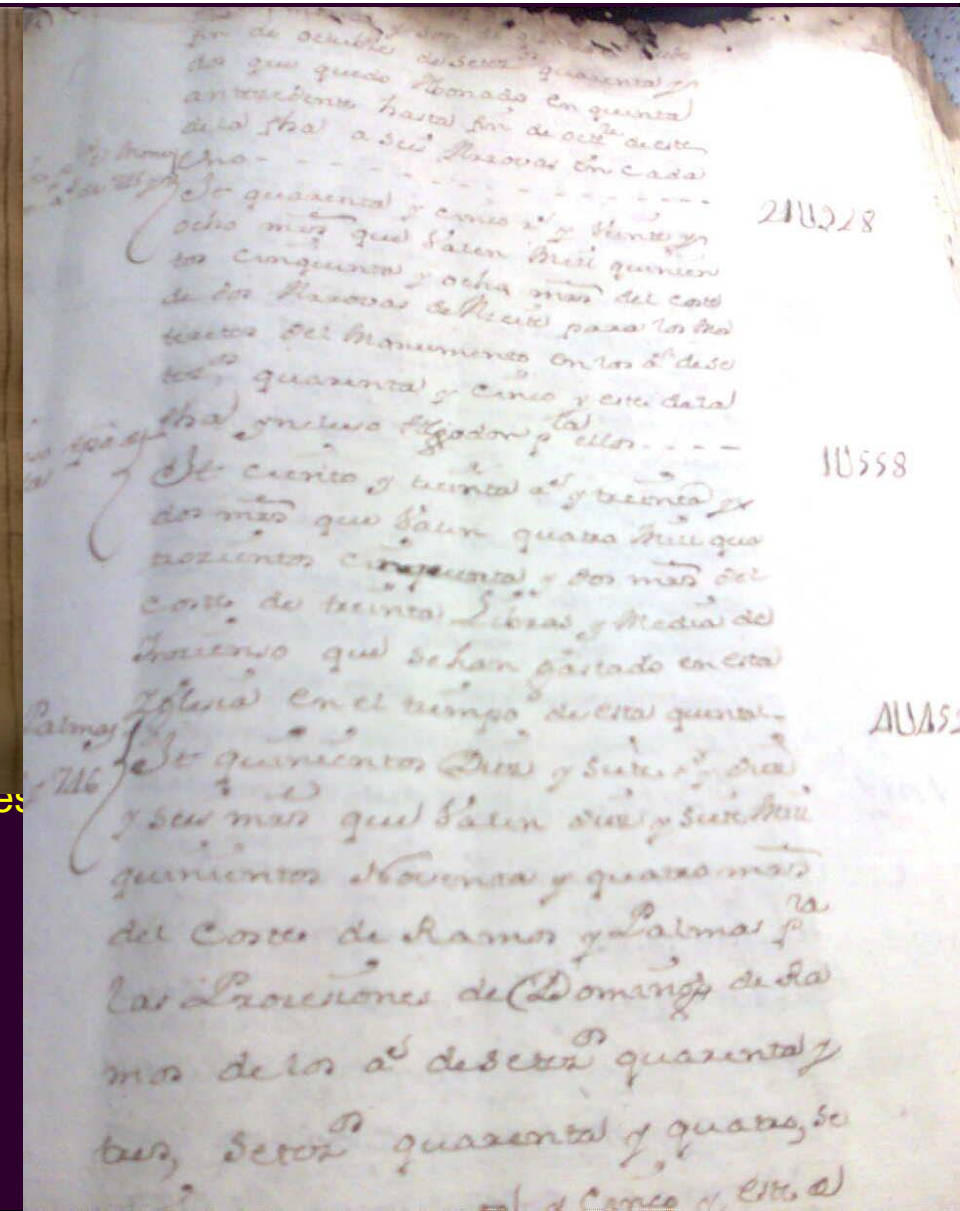 fin de octubre de setez.os quarenta y
dos que quedo Abonado en quenta
antezedente hasta fin de oct.re de este
de la fha a seis Arrovas en cada
Año - - - - - - - - - - - - -
It quarenta y cinco r.s y Veinte y
21U228
ocho mrs que Valen Mill quinien
tos cinquenta y ocho mrs del coste
de dos Arrovas de Azeite para los Mo
del Monumento en los a.s de se
tez.os quarenta y cinco y este de la
fha yncluso Algodon p.ra ellos - - - -
1U558
It ciento y treinta r.s y treinta y
dos mrs que Valen quatro Mill qua
trozientos cinquenta y dos mrs del
Coste de treinta Libras y Media de
Yncienso que se han gastado en esta
Yglesia en el tiempo de esta quenta -
4U452
Palmas
716
It quinientos Diez y siete r.s y diez
y seis mrs que Valen diez y siete Mill
quinientos Noventa y quatro mrs
del Coste de Ramos y Palmas p.ra
las Prozesiones de Domingo de Ra
mos de los a.s de setez.os quarenta y
tres, setez.os quarenta y quatro, se
y Cinco y este a
es